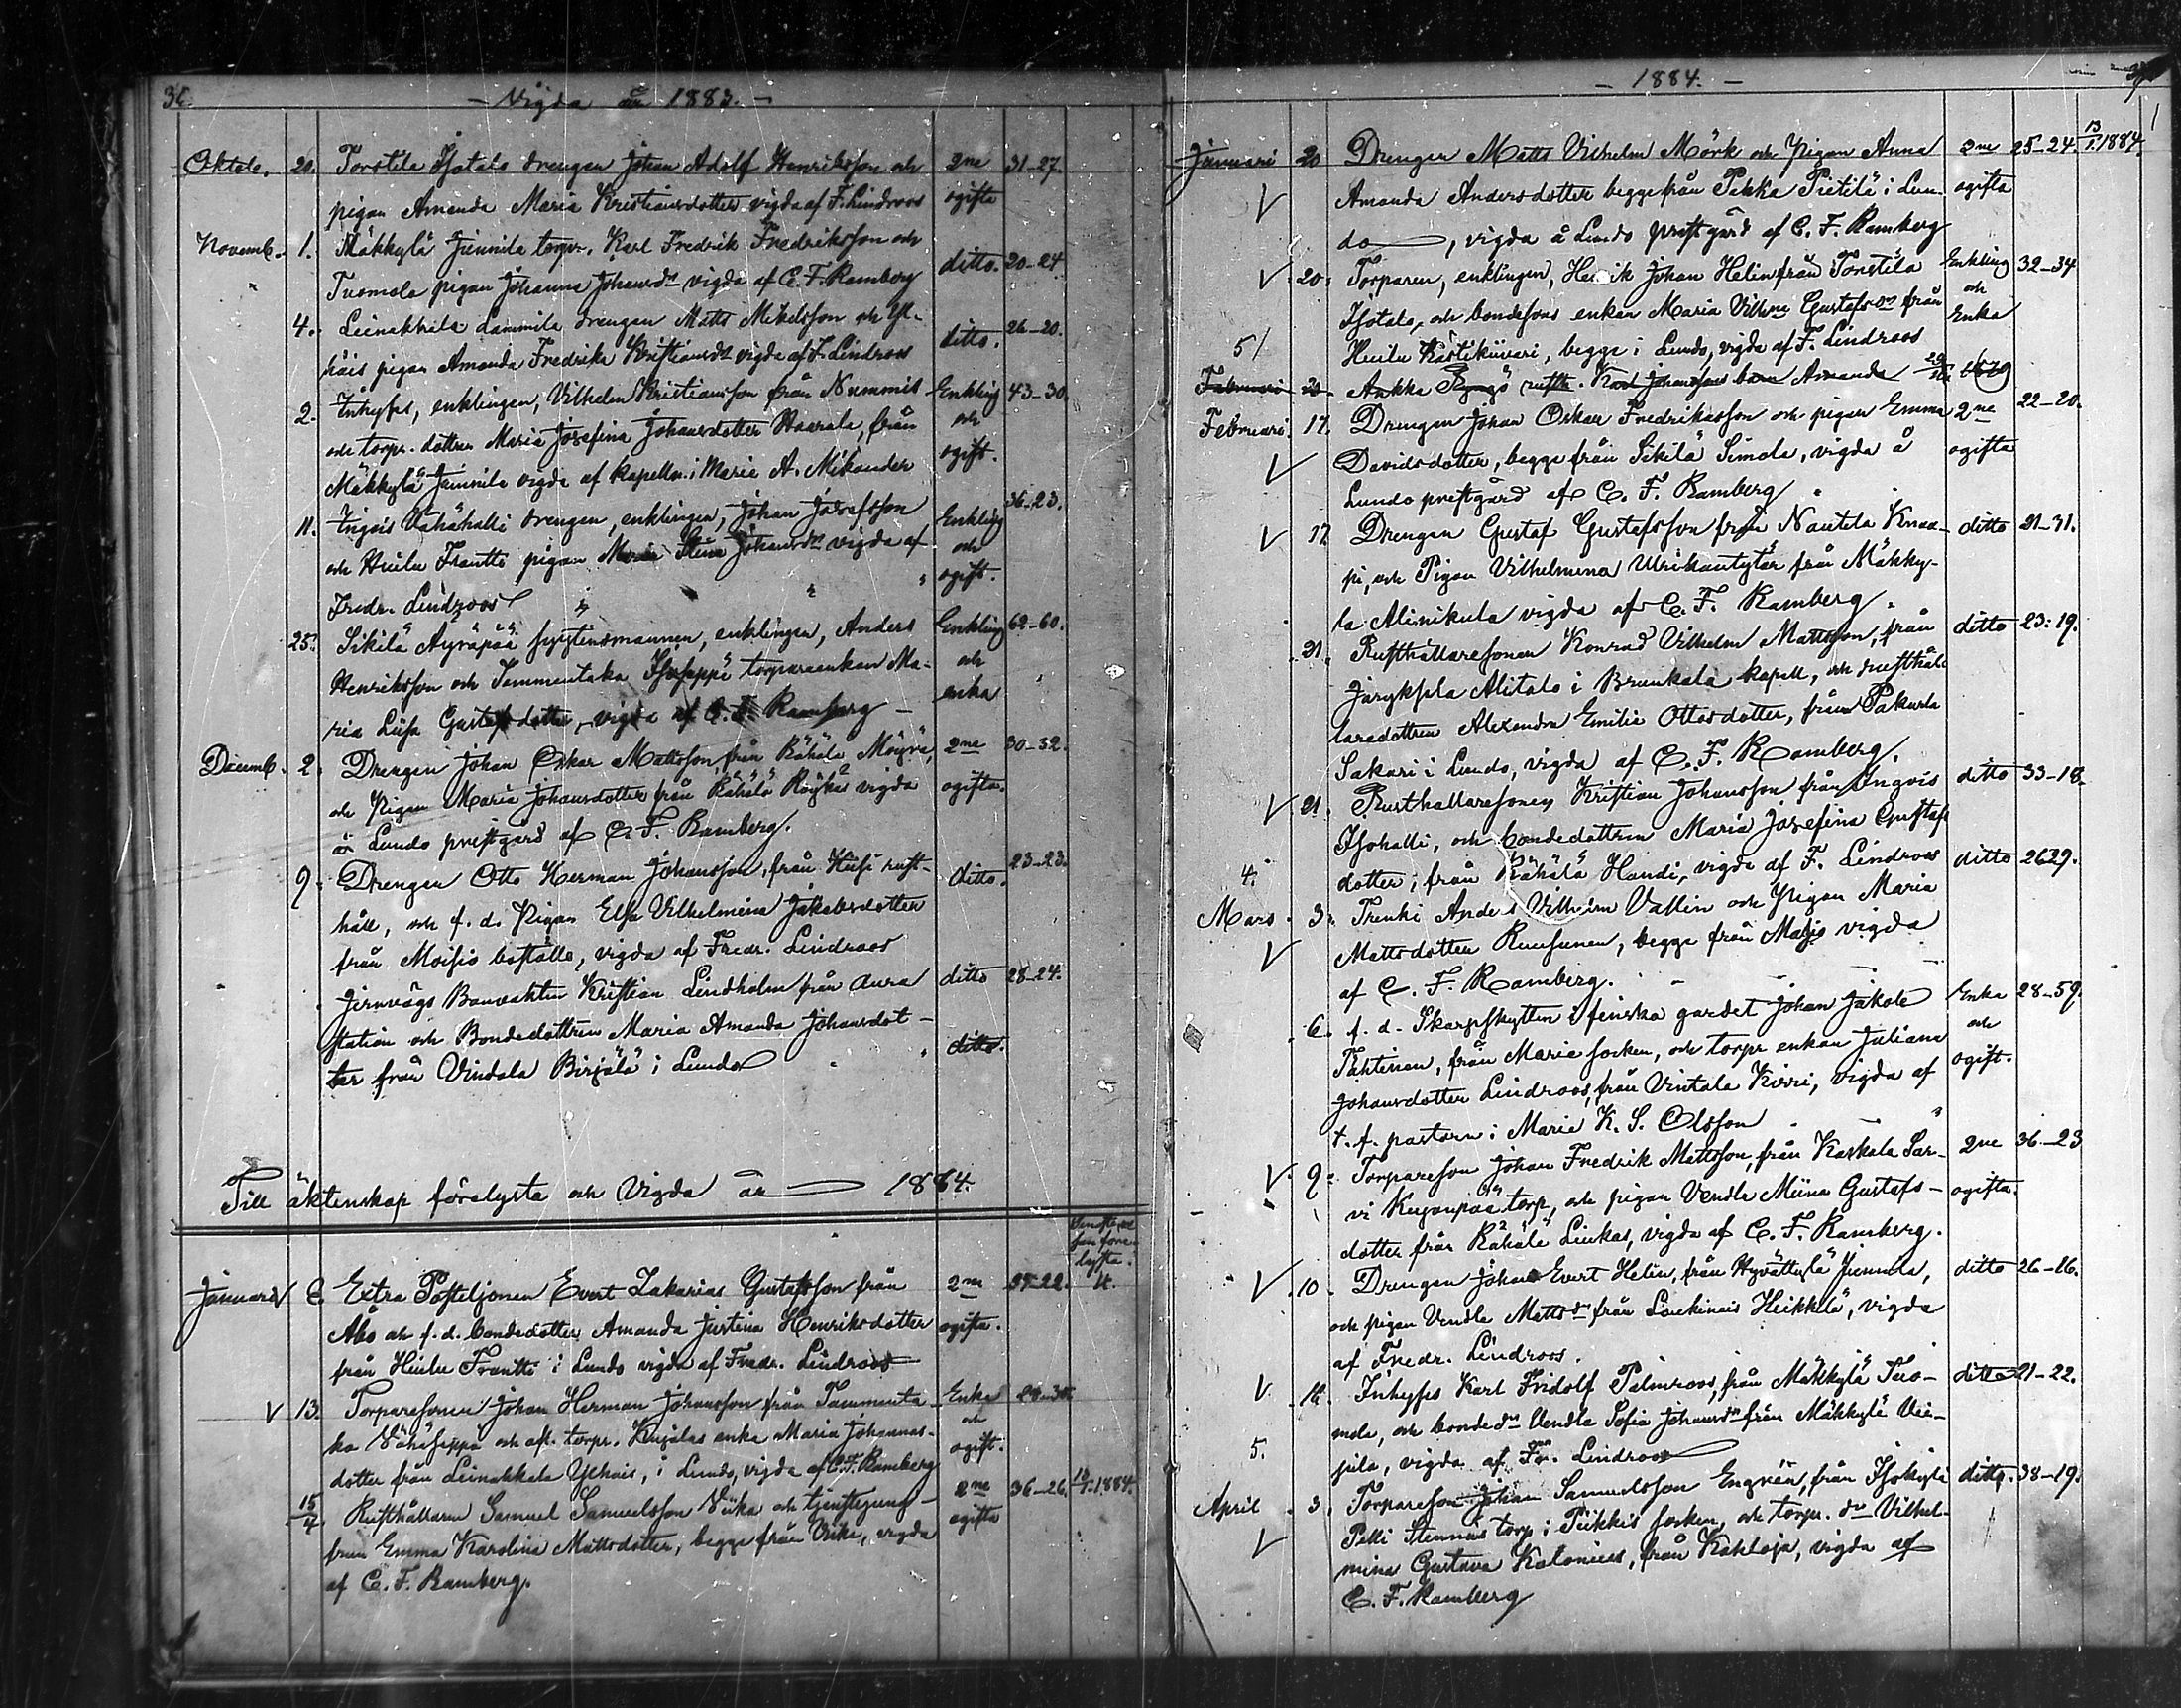 36.
- Vigda år 1883. -
Oktob. 20. Torstila Isotalo drengen Johan Adolf Henriksson och 2ne 31-27.
pigan Amanda Maria Kristiansdotter vigda af F. Lindroos ogifta
Novemb. 1. Mäkkylä Junnila torpr. Karl Fredrik Fredriksson och
Tuomola pigan Johanna Johansdr vigda af C. F. Ramberg ditto. 20-24
4. Leinakkila Lammila drengen Matts Mikelsson och Yl-
häis pigan Amanda Fredrika Kristiansdr vigda af F. Lindroos ditto. 26-20.
2. Inhyses, enklingen, Vilhelm Kristiansson från Nummis Enkling 43-30.
och torpr. dottren Maria Josefina Johansdotter Haarala, från och
Mäkkylä Junnila vigda af kapelln. i Marie A. Mikander ogift.
11. Ingois Vähähalli drengen, enklingen, Johan Josefsson Enkling 36-23.
och Huilu Frantti pigan Maria Stina Johansdr vigda af och
Fredr. Lindroos ogift.
25. Sikilä Äyräpää sysslingsmannen, enklingen, Anders Enkling 62-60.
Henriksson och Tammentaka Isoseppä torpareenkan Ma- och
ria Lisa Gustafsdotter, vigda af C. F. Ramberg - enka
Decemb. 2. Drengen Johan Oskar Mattsson från Rähälä Möyrä, 2ne 30-32.
och Pigan Maria Johansdotter från Rähälä Röykäs vigda ogifta.
å Lundo prestgård af C. F. Ramberg.
9. Drengen Otto Herman Johansson, från Kusi rust- ditto. 23-23.
håll, och f. d. Pigan Elsa Vilhelmina Jakobsdotter
från Moisio boställe, vigda af Fredr. Lindroos
Jernvägs Banvakten Kristian Lindholm från Aura ditto 28-24.
station och Bondedottren Maria Amanda Johansdot-
ter från Vindala Birjälä i Lundo ditto.
Till äktenskap förelysta och Vigda år 1884.
lysta.
Januari 6. Extra Postiljonen Evert Zakarias Gustafsson från 2ne
Åbo och f. d. bondedotter Amanda Justina Henriksdotter ogifta.
från Huilu Frantti i Lundo vigda af Fredr. Lindroos
V 13. Torparesonen Johan Herman Johansson från Tammenta- Enka
ka Vähäseppä och afl. torpr. Kujalas enka Maria Johannes- och
dotter från Leinakkala Ylhäis, i Lundo, vigda af C. F. Ramberg ogift.
15/4. Rusthållaren Samuel Samuelsson Viika och tjenstejung- 2ne 36-26. 1884.
frun Emma Karolina Mattsdotter, begge från Viika, vigda ogifta
af C. F. Ramberg.
- 1884. -
Januari 20 Drengen Matts Vilhelm Mörk och Pigan Anna 2ne 25-24. 13/1. 1884.
V Amanda Andersdotter begge från Pekka Pietilä i Lun- ogifta
do, vigda å Lundo prestgård af C. F. Ramberg
V 20. Torparen, enklingen, Henrik Johan Helin från Torstila Enkling 32-34
Isotalo, och bondesons enkan Maria Vilhma Gustafsdr från och
5/ Huilu Kästiküvari, begge i Lundo, vigda af F. Lindroos Enka
Februari 20. Ankka rusth. Karl Johanssons barn Amanda
Februari. 17. Drengen Johan Oskar Fredriksson och pigan Emma 2ne 22-20.
V Davidsdotter, begge från Sikilä Simola, vigda å ogifta
Lundo prestgård af C. F. Ramberg
V 17 Drengen Gustaf Gustafsson från Nautela Knaa- ditto 21-31.
pi, och Pigan Vilhelmina Ulrikantytär från Mäkky-
lä Alinikula vigda af C. F. Ramberg.
21. Rusthållaresonen Konrad Vilhelm Mattsson, från ditto 23:19.
Järykselä Alitalo i Brunkala kapell, och rusthål-
laredottren Alexandra Emilia Ottosdotter, från Pakurla
Sakari i Lundo, vigda af C. F. Ramberg.
V 21. Rusthållaresonen Kristian Johansson från Ingois ditto 33-18.
Isohalli, och bondedottren Maria Josefina Gustafs
4. dotter, från Rähälä Handi, vigda af F. Lindroos ditto 26 29.
Mars. 3. Trenki Anders Vilhelm Vallin och Pigan Maria
V Mattsdotter Ruusunen, begge från Masis vigda
af C. F. Ramberg.
6. f. d. Skarpskytten i finska gardet Johan Jakob Enka 28-59.
Tähtinen, från Marie socken, och torpr enkan Juliana och
Johansdotter Lindroos, från Vintala Kirri, vigda af ogift.
t. f. pastorn i Marie K. S. Olsson
V. 9. Torpareson Johan Fredrik Mattsson, från Kaskala Sar- 2ne 36-23
vi Kujanpää torp, och pigan Vendla Miina Gustafs- ogifta.
dotter från Rähälä Liukas, vigda af C. F. Ramberg.
V. 10. Drengen Johan Evert Helin, från Hyvättylä Junnila, ditto 26-26.
och pigan Vendla Mattsdr från Laukinais Heikkilä, vigda
af Fredr. Lindroos.
V. 14. Inhyses Karl Fridolf Palmroos, från Mäkkylä Tuo- ditto 21-22.
mola, och bondedr Vendla Sofia Johansdr från Mäkkylä Vei-
5. jola, vigda af Fr. Lindroos
April. 3. Torpareson Johan Samuelsson Engrén, från Isokylä ditto. 38-19.
V Pelli Stennäs torp i Piikkis socken, och torpr. dr Vilhel-
mina Gustava Katonius, från Kakloja, vigda af
C. F. Ramberg